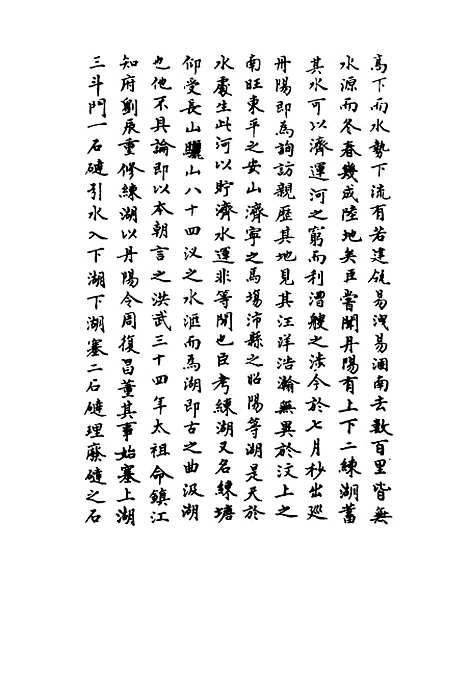 高下而水勢下流有若建瓴易洩易涸南去數百里皆無
水源而冬春幾成陸地矣臣嘗聞丹陽有上下二練湖蓄
其水可以濟運河之窮而利漕艘之涉今於七月杪出廵
丹陽即為詢訪親歷其地見其汪洋浩瀚無異於汶上之
南旺東平之安山濟寧之馬塲沛縣之昭陽等湖是天於
水處生此河以貯濟水運非等閒也臣考練湖又名練塘
仰受長山驪山八十四汊之水滙而為湖即古之曲汲湖
也他不具論即以本朝言之洪武三十四年太祖命鎮江
知府劉辰重修練湖以丹陽令周復昌董其事始塞上湖
三斗門一石䃮引水入下湖下湖塞二石䃮理廢䃮之石